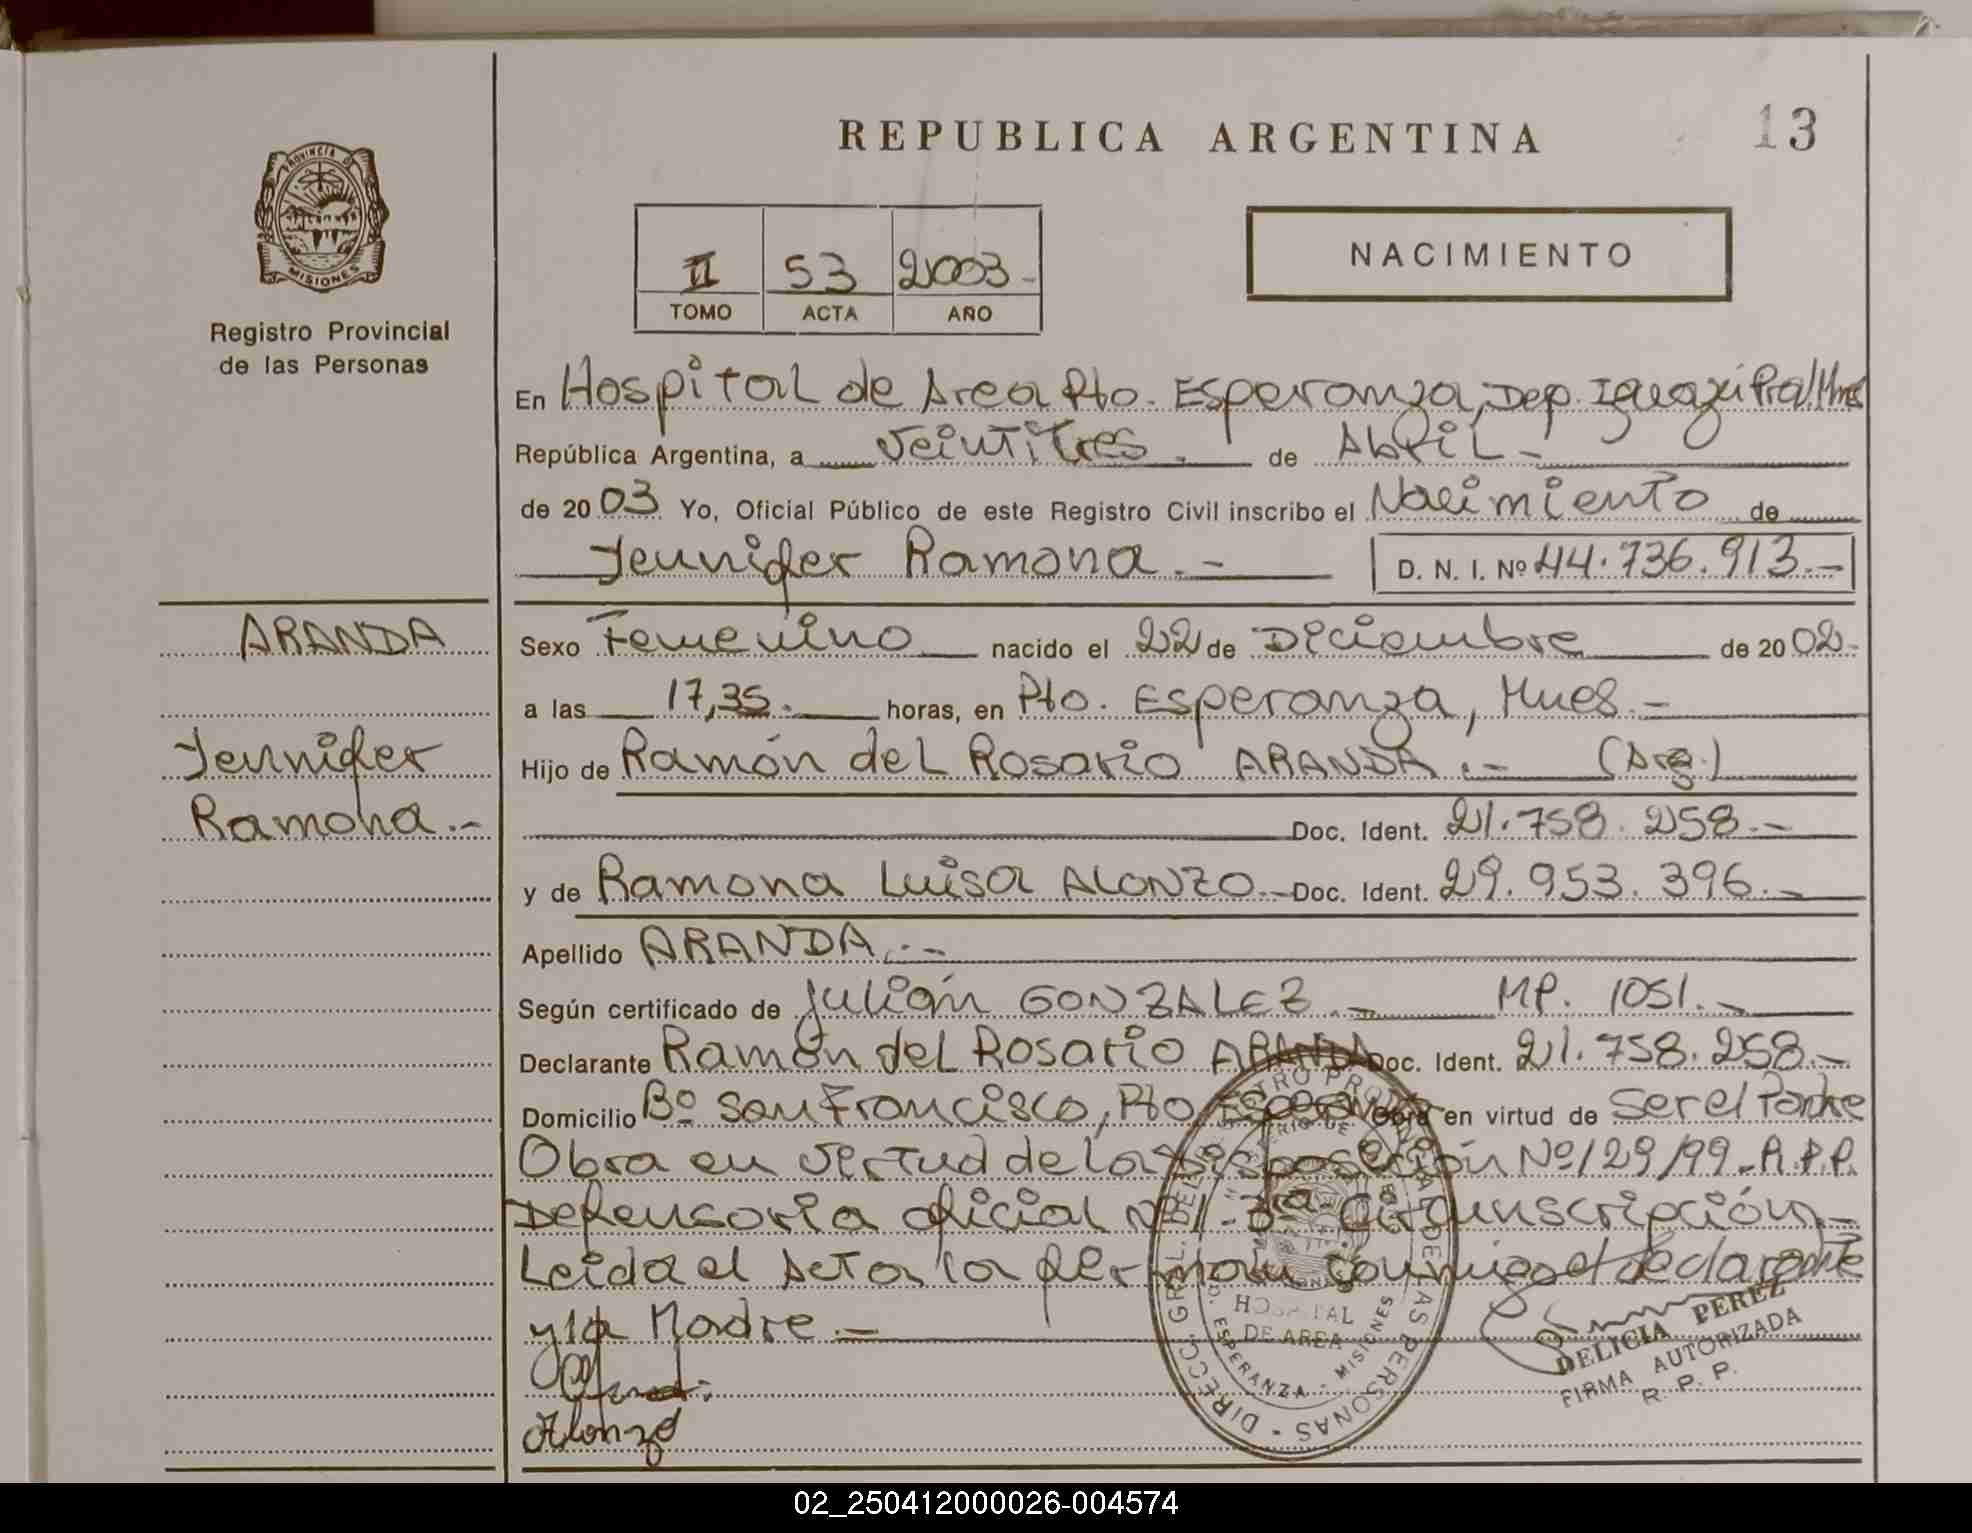 REPUBLICA ARGENTINA
13
PROVINCIA DE
MISIONES
Registro Provincial
de las Personas
II 53 2003-
TOMO ACTA AÑO
NACIMIENTO
En Hospital de Area Pto. Esperanza, Dep. Iguazú Pcia/Mnes
República Argentina, a veintitres. de Abril -
de 2003 Yo, Oficial Público de este Registro Civil inscribo el Nacimiento de
Jennifer Ramona.- D. N. I. Nº 44.736.913.-
ARANDA
Jennifer
Ramona.-
Sexo Femenino nacido el 22 de Diciembre de 2002-
a las 17,35. horas, en Pto. Esperanza, Mnes.-
Hijo de Ramón del Rosario ARANDA.- (Arg.)
Doc. Ident. 21.758.258.-
y de Ramona Luisa ALONZO.- Doc. Ident. 29.953.396.-
Apellido ARANDA.-
Según certificado de Julián GONZALEZ.- MP. 1051.-
Declarante Ramón del Rosario ARANDA Doc. Ident. 21.758.258.-
Domicilio Bº San Francisco, Pto Esperanza Obra en virtud de ser el Padre
Obra en virtud de la Disposición Nº 129/99-R.P.P.
Defensoria oficial Nº 1-3ª Circunscripción.-
Leida el Acta la firman conmigo el declarante
y la Madre.-
Alonzo
DIRECC. GRAL. DEL REGISTRO PROVINCIAL DE LAS PERSONAS
HOSPITAL
DE AREA
ESPERANZA - MISIONES
DELICIA PEREZ
FIRMA AUTORIZADA
R. P. P.
02_250412000026-004574